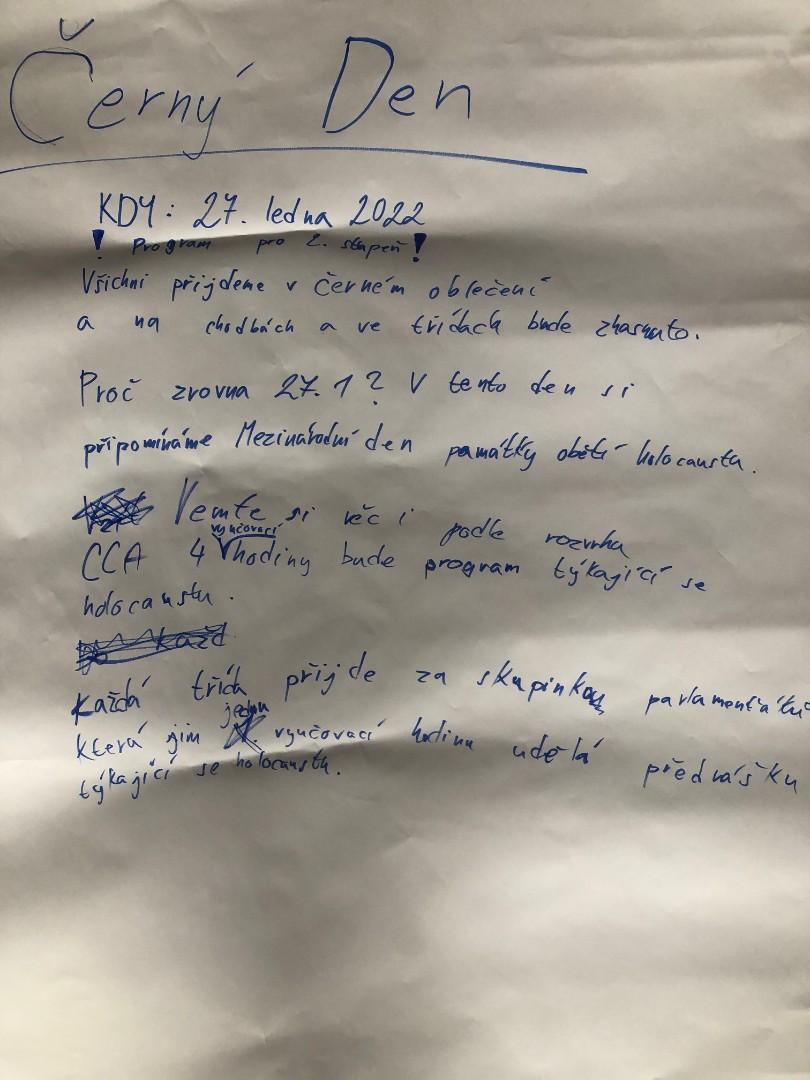 Černý Den
KDY: 27. ledna 2022
! Program pro 2. stupeň !
Všichni přijdeme v černém oblečení
a na chodbách a ve třídách bude zhasnuto.
Proč zrovna 27.1? V tento den si
připomínáme Mezinárodní den památky obětí holocaustu.
Vemte si věci podle rozvrhu
CCA 4 vyučovací hodiny bude program týkající se
holocaustu.
Každ
Každá třída přijde za skupinkou parlamenťáků
která jim jednu vyučovací hodinu udělá přednášku
týkající se holocaustu.